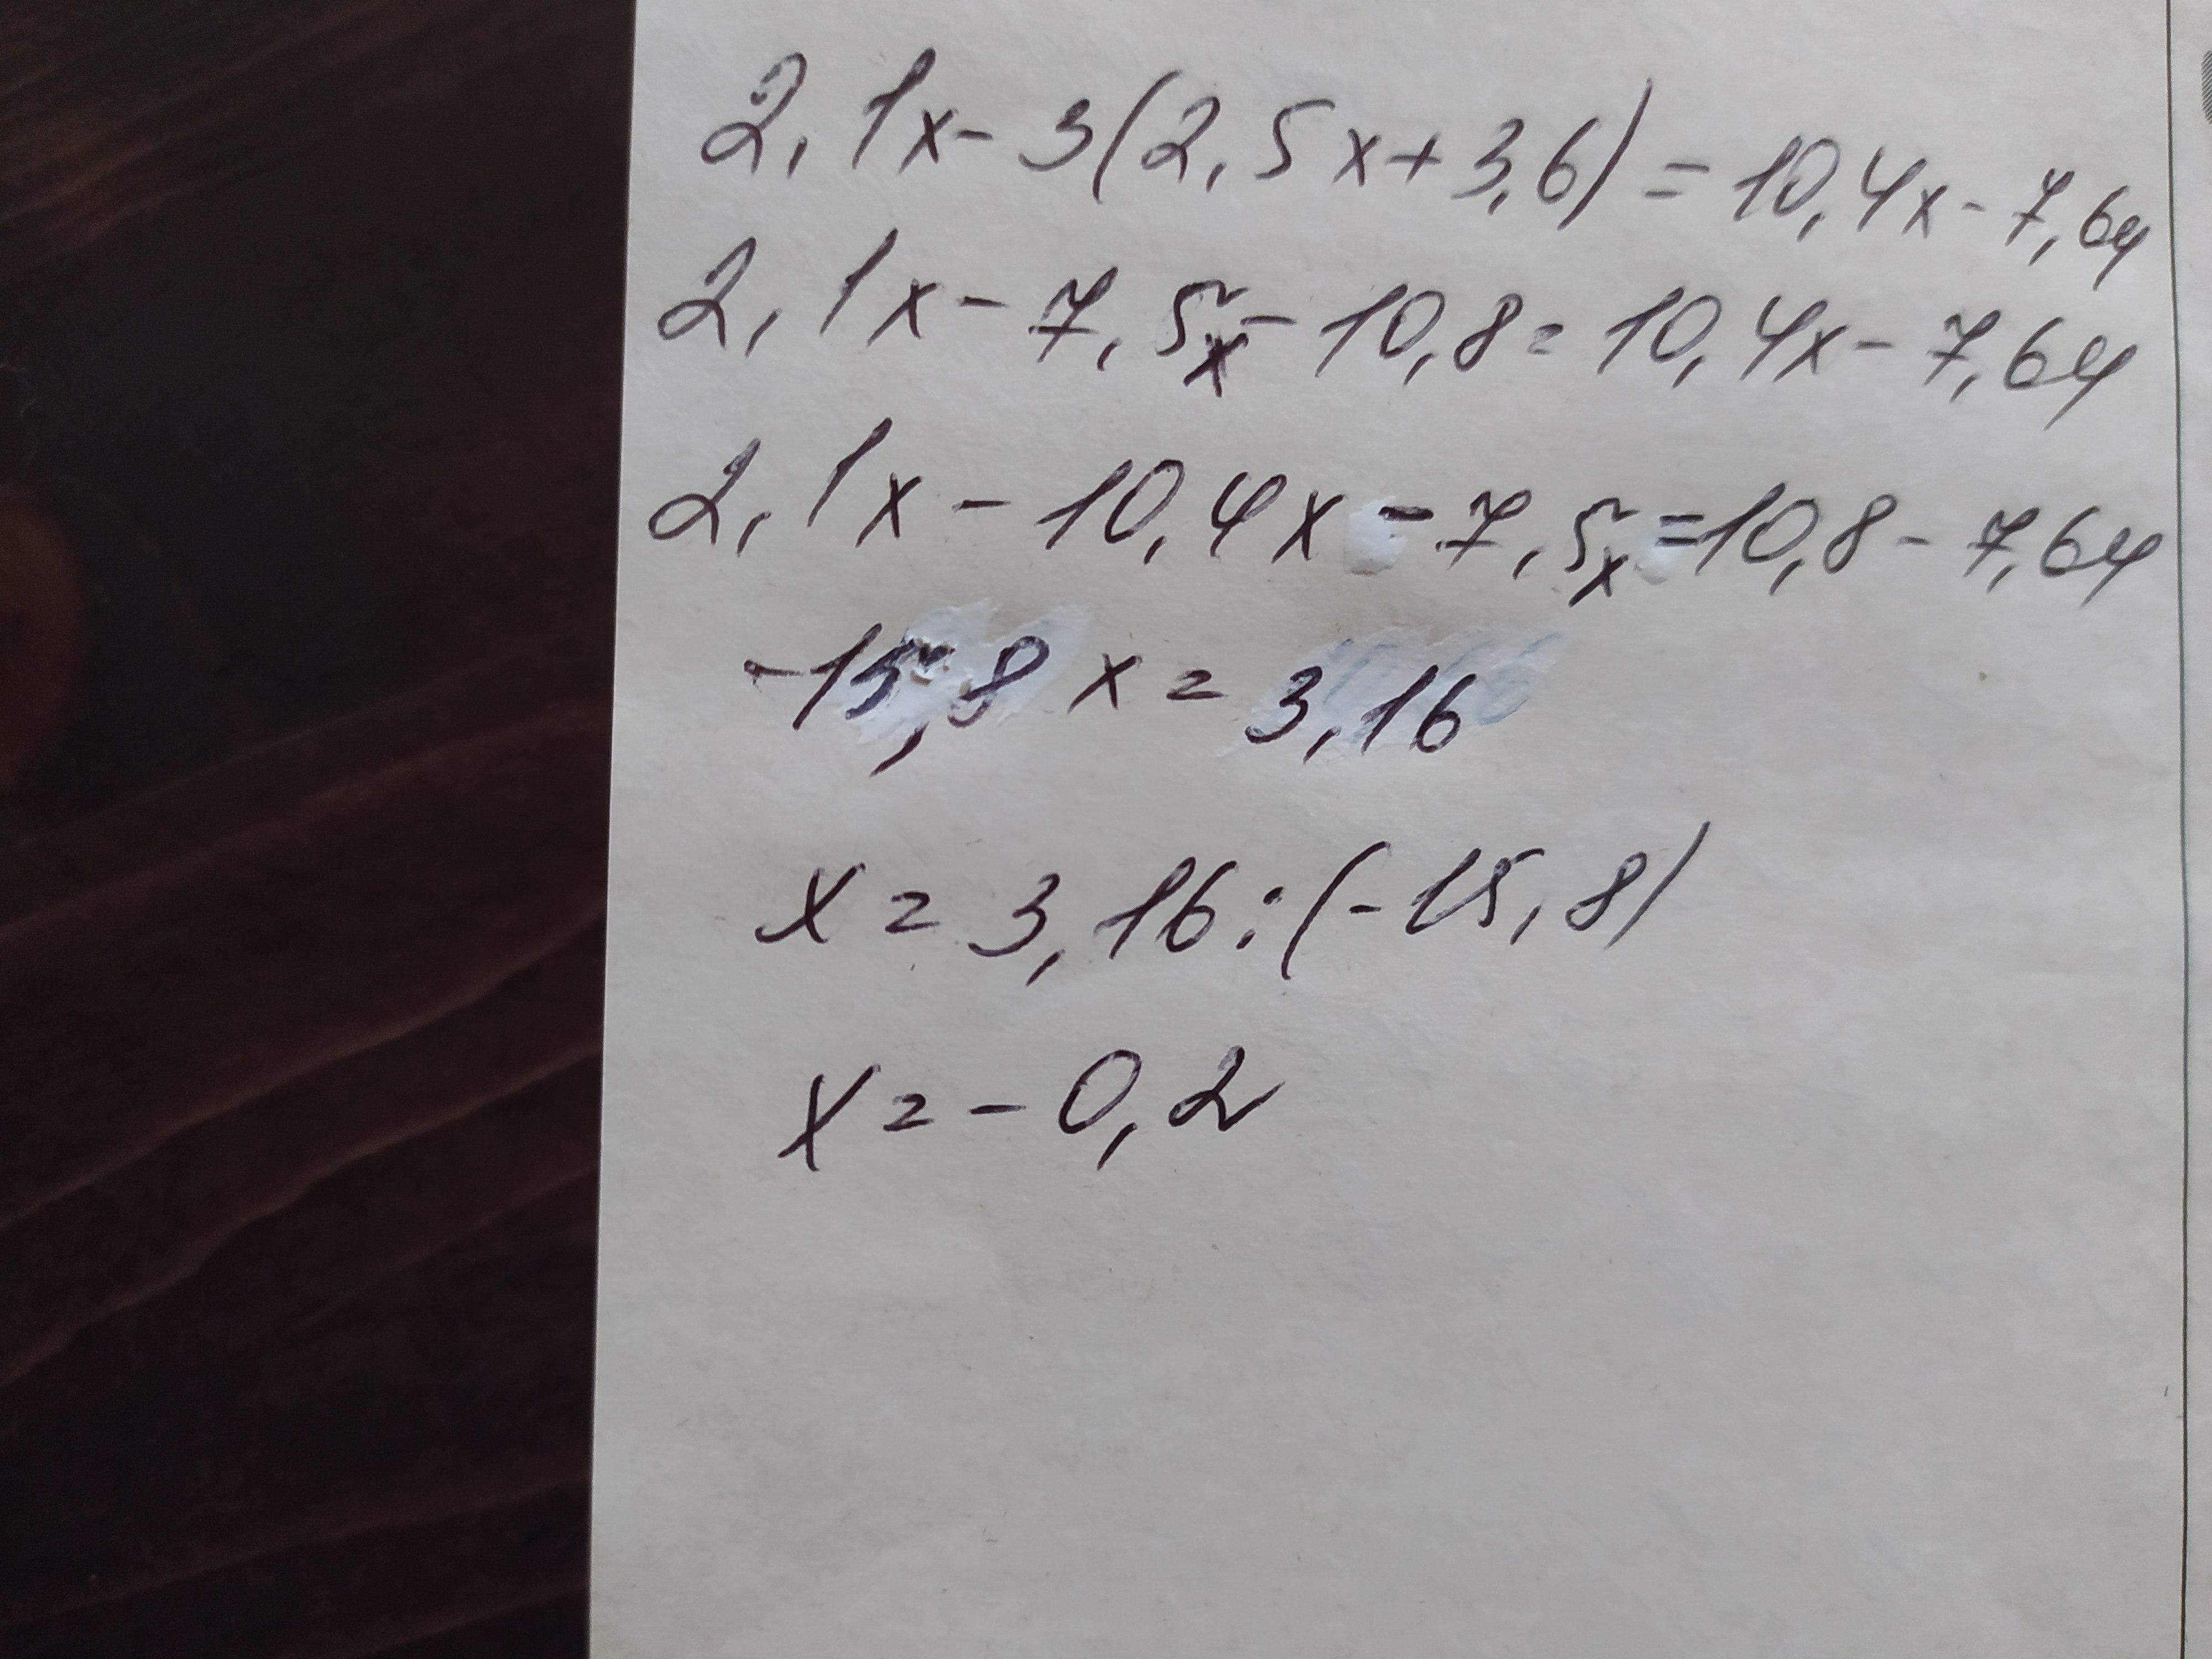 2,1x - 3(2,5x + 3,6) = 10,4x - 7,64
2,1x - 7,5x - 10,8 = 10,4x - 7,64
2,1x - 10,4x - 7,5x = 10,8 - 7,64
-15,8x = 3,16
x = 3,16 : (-15,8)
x = -0,2